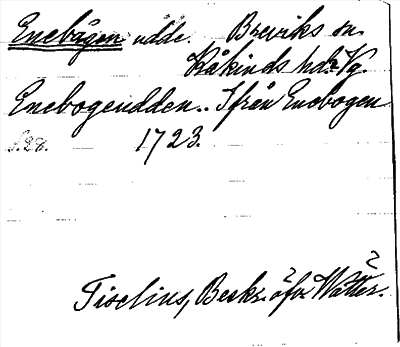 Enebågen udde. Breviks sn.
Kåkinds hd. Vg.
Enebogeudden.. Ifrån Enebogen
s. 28. 1723.
Tiselius, Beskr. öfv. Wätter.